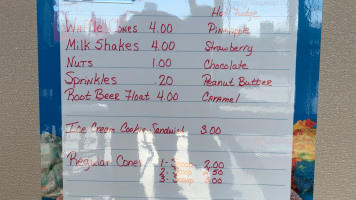 Hot Fudge
Waffle Cones 4.00 Pineapple
Milk Shakes 4.00 Strawberry
Nuts 1.00 Chocolate
Sprinkles .20 Peanut Butter
Root Beer Float 4.00 Caramel
Ice Cream Cookie Sandwich 3.00
Regular Cones 1-Scoop 2.00
2-Scoop 2.50
3-Scoop 3.00